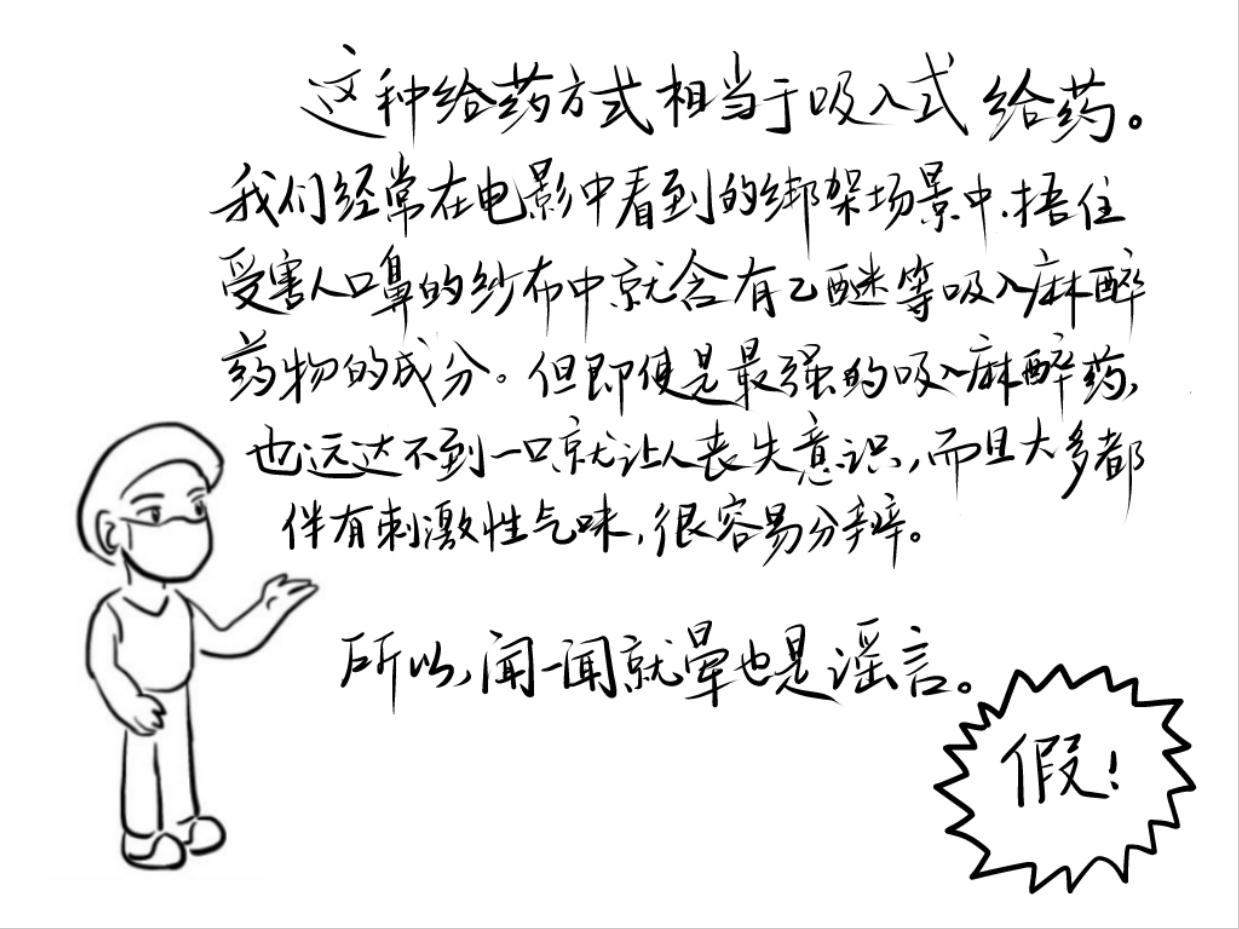 这种给药方式相当于吸入式给药。
我们经常在电影中看到的绑架场景中,捂住
受害人口鼻的纱布中就含有乙醚等吸入麻醉
药物的成分。但即使是最强的吸入麻醉药,
也远达不到一口就让人丧失意识,而且大多都
伴有刺激性气味,很容易分辨。
所以,闻一闻就晕也是谣言。
假!